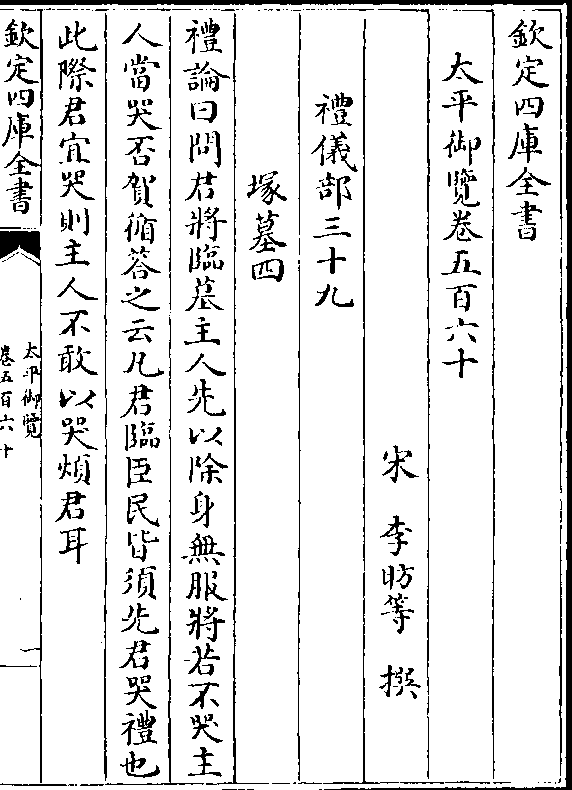 欽定四庫全書
太平御覽卷五百六十
宋 李昉等 撰
禮儀部三十九
塚墓四
禮論曰問君將臨墓主人先以除身無服將若不哭主
人當哭否賀循答之云凡君臨臣民皆須先君哭禮也
此際君宜哭則主人不敢以哭煩君耳
欽定四庫全書
太平御覽
卷五百六十
一